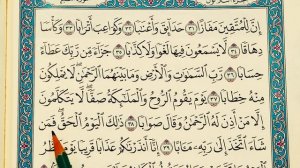 إِنَّ لِلْمُتَّقِينَ مَفَازًا ٣١ حَدَآئِقَ وَأَعْنَٰبًا ٣٢ وَكَوَاعِبَ أَتْرَابًا ٣٣ وَكَأْسًا
دِهَاقًا ٣٤ لَّا يَسْمَعُونَ فِيهَا لَغْوًا وَلَا كِذَّٰبًا ٣٥ جَزَآءً مِّن رَّبِّكَ عَطَآءً
حِسَابًا ٣٦ رَّبِّ ٱلسَّمَٰوَٰتِ وَٱلْأَرْضِ وَمَا بَيْنَهُمَا ٱلرَّحْمَٰنِ لَا يَمْلِكُونَ
مِنْهُ خِطَابًا ٣٧ يَوْمَ يَقُومُ ٱلرُّوحُ وَٱلْمَلَٰٓئِكَةُ صَفًّا لَّا يَتَكَلَّمُونَ
إِلَّا مَنْ أَذِنَ لَهُ ٱلرَّحْمَٰنُ وَقَالَ صَوَابًا ٣٨ ذَٰلِكَ ٱلْيَوْمُ ٱلْحَقُّ فَمَن
شَآءَ ٱتَّخَذَ إِلَىٰ رَبِّهِۦ مَـَٔابًا ٣٩ إِنَّآ أَنذَرْنَٰكُمْ عَذَابًا قَرِيبًا يَوْمَ يَنظُرُ